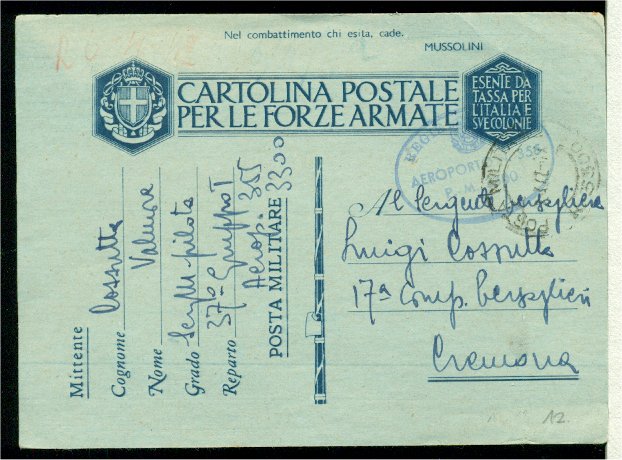 Nel combattimento chi esita, cade.
MUSSOLINI
CARTOLINA POSTALE
PER LE FORZE ARMATE
ESENTE DA
TASSA PER
L'ITALIA E
SVE COLONIE
355
AEROPORTO
P. M.
POSTA MILIT
Al Sergente bersagliere
Luigi Cossutta
17ª Comp. Bersaglieri
Cremona
Mittente
Cognome Cossutta
Nome
Grado Serg. M. pilota
Reparto 37º Gruppo T
Aerop. 355
POSTA MILITARE 3300
12